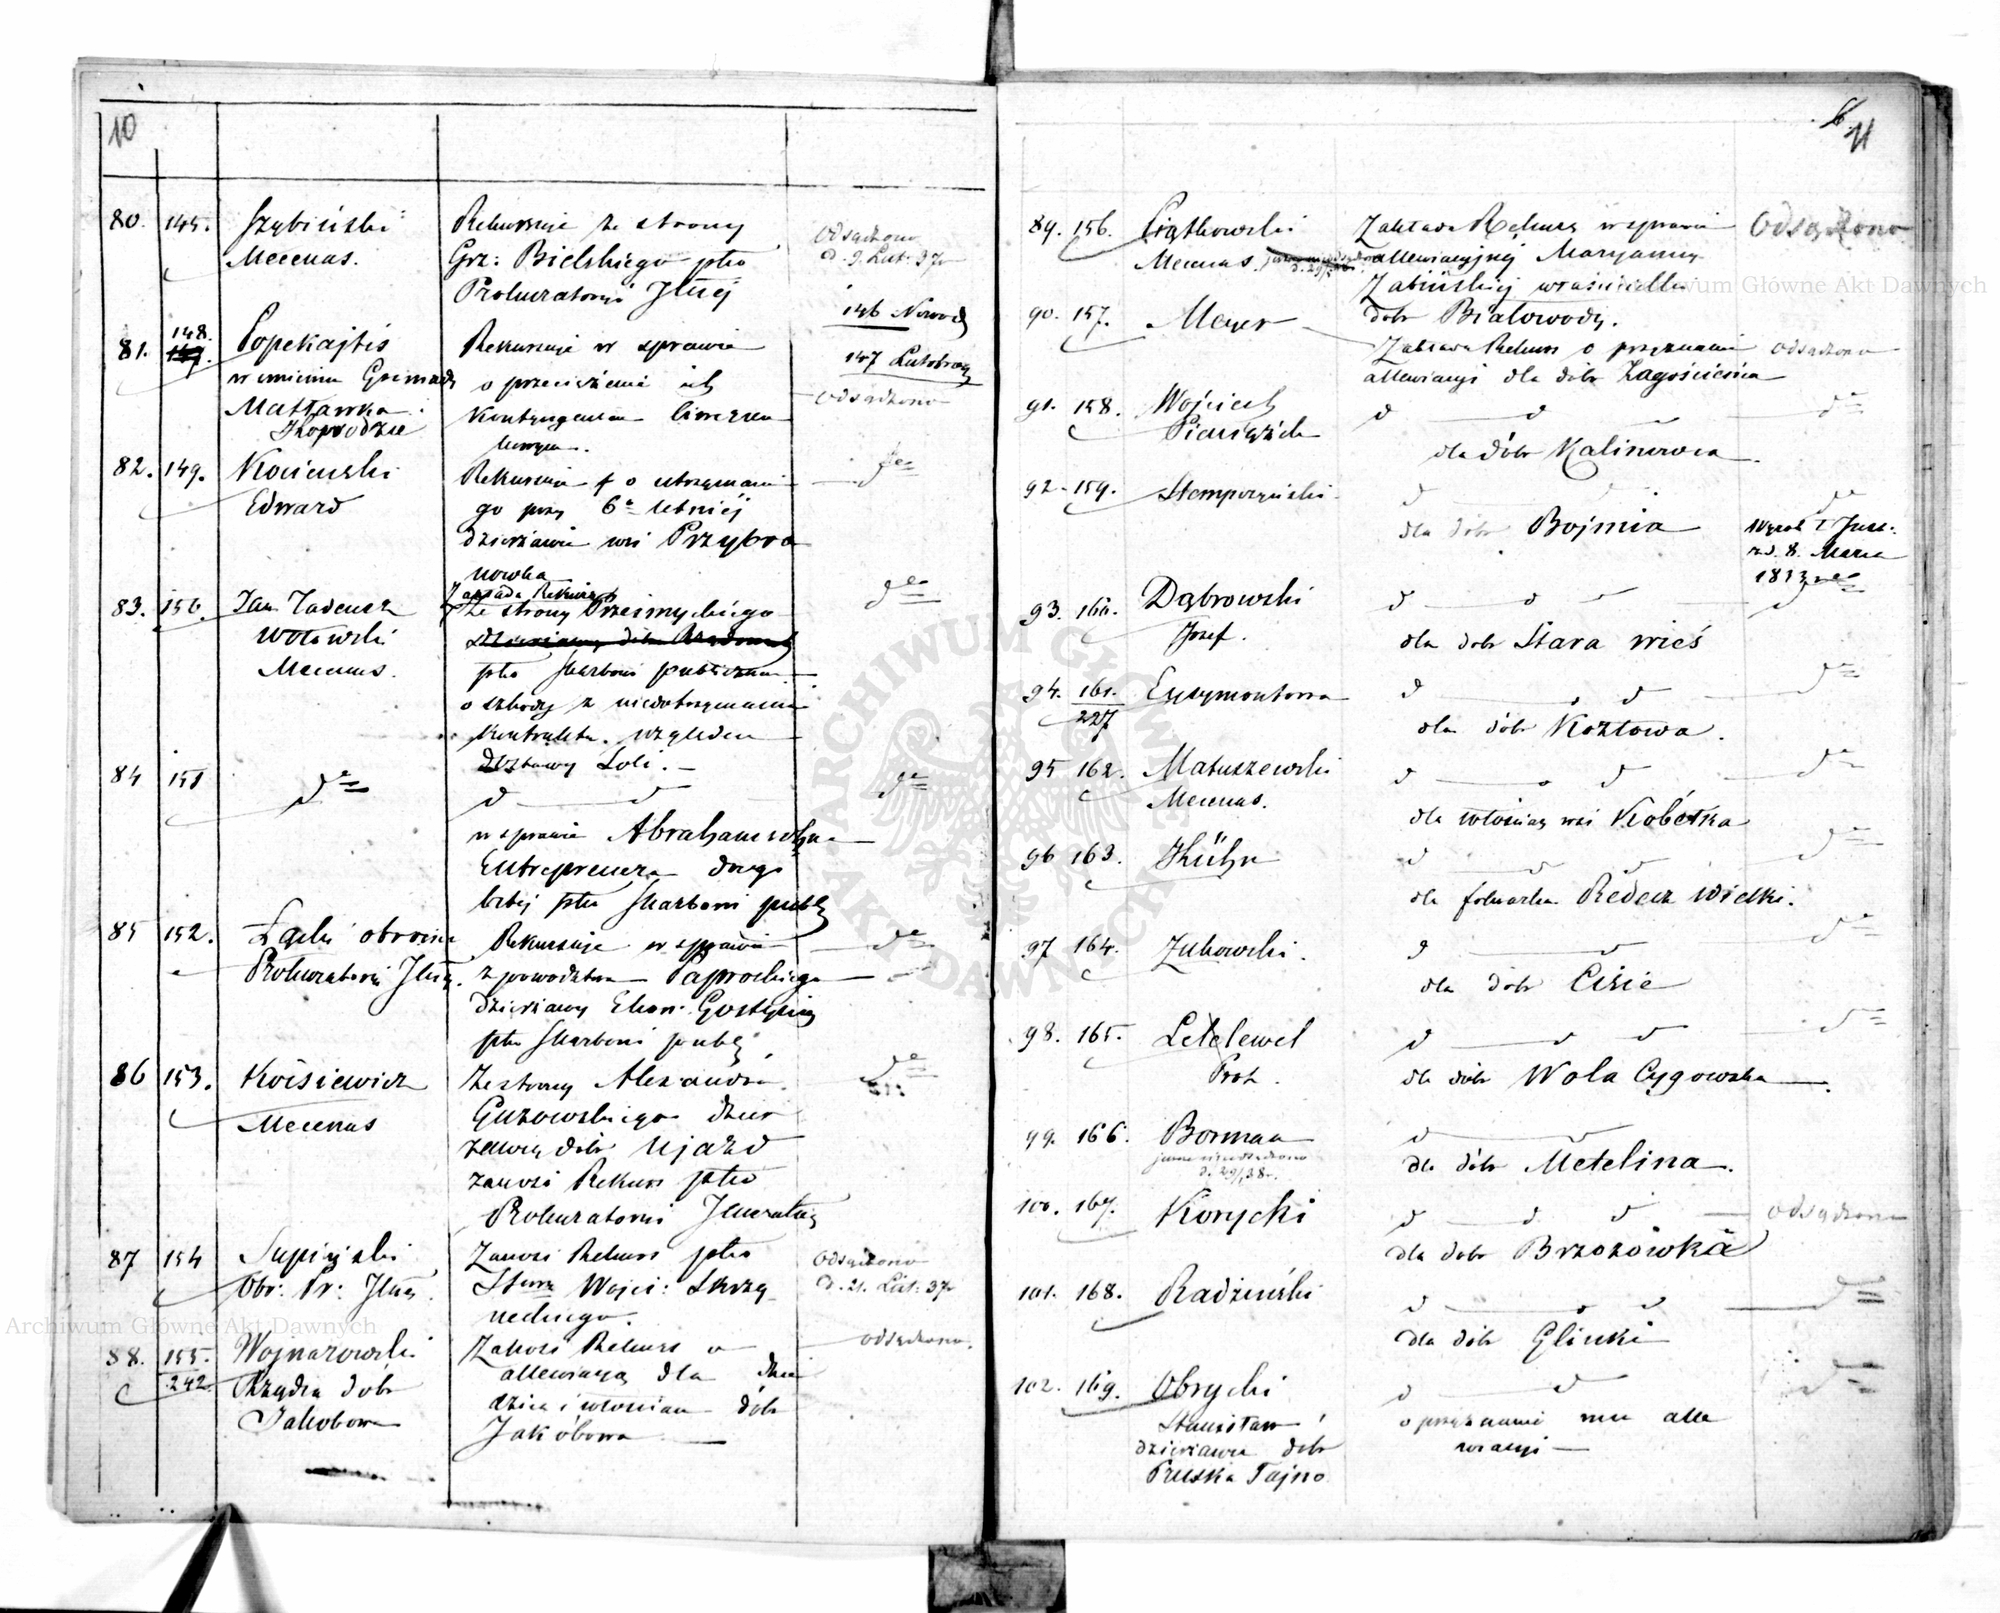 10
80. 145. Szybiński Mecenas.
Rekursuje ze strony
Grz: Bielskiego pko
Prokuratoryi Jłnej
Odsądzono
d. 9. Lut: 37r
146 Nowod
147 Lutobrog
81. 148. Popekajtis
w imieniu Gromady
Mattawka
Rekursuje w sprawie
o przeciążenie ich
Kontyngensem liwerun
kowym.
odsądzono
82. 149. Kosiewski
Edward
Rekursuje o utrzymanie
go przy 6o letniéj
dzierżawie wsi Przybra
nowka
de
83. 150. Jan Tadeusz
Wotowski
Mecenas.
Zakłada Rekurs
Ze strony Przesmyckiego
pko Skarbowi publiczne
o szkody z niedotrzymania
Kontraktu względem
Dostawy Soli.
de
84 151 de
d d
w sprawie Abrahamsohna
Entreprenera drugo
pko Skarbowi publ
de
85 152. Łąski obrońca
Prokuratoryi Jłnej.
Rekursuje w sprawie
z powodztwa Paprockiego
dzierżawy Ekon: Gostynin
pko Skarbowi publ
de
86 153. Kosiewicz
Mecenas
Ze strony Alexandra
Guzowskiego dzier
żawcy dóbr Ujazd
zanosi Rekurs pko
Prokuratoryi Jeneralnej
de
87 154 Supiński
Obr: Pr: Jłnej.
Zanosi Rekurs pko
Wojc: Skrzy
neckiego.
Odsądzono
d. 21. Lut: 37r
88. 155. 242 Wojnarowski
Rządca dóbr
Jakobowa
Zanosi Rekurs o
allewiacyą dla dzie
dzica i włościan dóbr
Jakóbowa
odsądzono.
11
89. 156. Piątkowski
Mecenas.
Zakłada Rekurs w sprawie
allewiacyjnéj Maryanny
Zabińskiej właścicielki
dóbr Białowody.
Odsądzono
90. 157. Meyer
Zakłada Rekurs o przyznanie
allewiacyi dla dóbr Zagościenia
odsądzono
91. 158. Wojciech
Pieniążek
d d
dla dóbr Kalinowca.
de
92. 159. Stempczyński
d
dla dóbr Bojmia
de
8. Marca
1833
93. 160. Dąbrowski
Józef.
d d
dla dóbr Stara wieś
de
94. 161. 227 Eysymontowa
d d
dla dóbr Kozłowa.
de
95 162. Matuszewski
Mecenas.
d d
dla włościan wsi Kobétka
de
96 163. Kühn
d d d
dla folwarku Redecz Wielki.
de
97 164. Zukowski.
d d
dla dóbr Cisie
de
98. 165. Lelewel
Prot.
d d d
dla dóbr Wola Cygowska.
de
99. 166. Borman
d d
dla dóbr Metelina.
100. 167. Korycki
d d d
dla dóbr Brzozówka
odsądzono
101. 168. Radziński
d d
dla dóbr Glinki
de
102. 169. Obrycki
Stanisław
dzierżawca dóbr
Pruska Tajno
d d
o przyznanie mu alle
wiacyi
de
Archiwum Główne Akt Dawnych
Archiwum Główne Akt Dawnych
ARCHIWUM GŁÓWNE AKT DAWNYCH